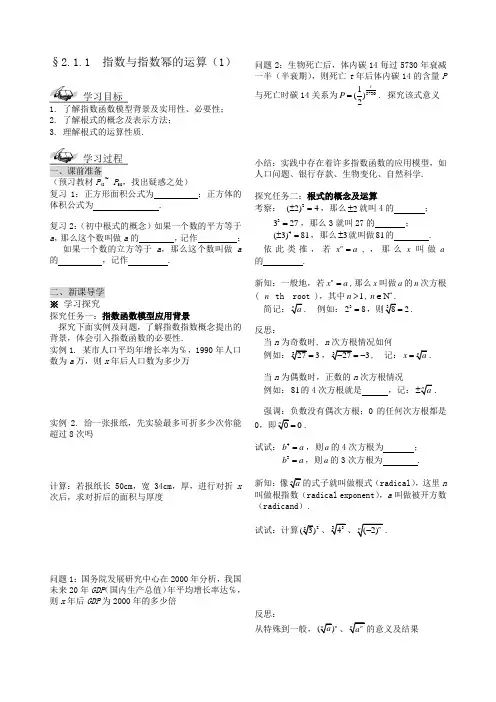 §2.1.1 指数与指数幂的运算（1）
学习目标
1. 了解指数函数模型背景及实用性、必要性；
2. 了解根式的概念及表示方法；
3. 理解根式的运算性质.
学习过程
一、课前准备
（预习教材P48~ P50，找出疑惑之处）
复习1：正方形面积公式为 ；正方体的
体积公式为 .
复习2：（初中根式的概念）如果一个数的平方等于
a，那么这个数叫做a的 ，记作 ；
如果一个数的立方等于a，那么这个数叫做a
的 ，记作 .
二、新课导学
※ 学习探究
探究任务一：指数函数模型应用背景
探究下面实例及问题，了解指数指数概念提出的
背景，体会引入指数函数的必要性.
实例1. 某市人口平均年增长率为℅，1990年人口
数为a万，则x年后人口数为多少万
实例2. 给一张报纸，先实验最多可折多少次你能
超过8次吗
计算：若报纸长50cm，宽34cm，厚，进行对折x
次后，求对折后的面积与厚度
问题1：国务院发展研究中心在2000年分析，我国
未来20年GDP（国内生产总值）年平均增长率达℅，
则x年后GDP为2000年的多少倍
问题2：生物死亡后，体内碳14每过5730年衰减
一半（半衰期），则死亡t年后体内碳14的含量P
与死亡时碳14关系为P=(1/2)^(t/5730). 探究该式意义
小结：实践中存在着许多指数函数的应用模型，如
人口问题、银行存款、生物变化、自然科学.
探究任务二：根式的概念及运算
考察：(±2)²=4，那么±2就叫4的 ；
3³=27，那么3就叫27的 ；
(±3)⁴=81，那么±3就叫做81的 .
依此类推，若xⁿ=a，，那么x叫做a
的 .
新知：一般地，若xⁿ=a，那么x叫做a的n次方根
( n th root )，其中n>1，n∈N*.
简记：ⁿ√a. 例如：2³=8，则³√8=2.
反思：
当n为奇数时，n次方根情况如何
例如：³√27=3，³√-27=-3， 记：x=ⁿ√a.
当n为偶数时，正数的n次方根情况
例如：81的4次方根就是 ，记：±ⁿ√a.
强调：负数没有偶次方根；0的任何次方根都是
0，即ⁿ√0=0.
试试：b⁴=a，则a的4次方根为 ；
b³=a，则a的3次方根为 .
新知：像ⁿ√a的式子就叫做根式（radical），这里n
叫做根指数（radical exponent），a叫做被开方数
（radicand）.
试试：计算
反思：
从特殊到一般，(ⁿ√a)ⁿ、ⁿ√aⁿ的意义及结果